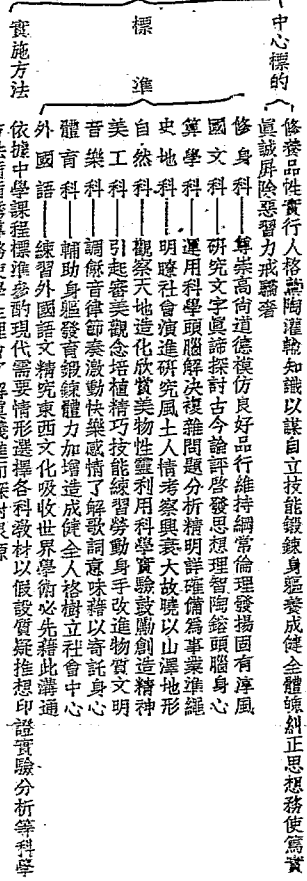 中心標的
修養品性實行人格薰陶灌輸知識以謀自立技能鍛鍊身軀養成健全體魄糾正思想務使篤實
眞誠屏除惡習力戒驕奢
標準
修身科——尊崇高尚道德模仿良好品行維持綱常倫理發揚固有淳風
國文科——研究文字眞諦探討古今論評啓發思想理智陶鎔頭腦身心
算學科——運用科學頭腦解決複雜問題分析精明詳確備爲事業準繩
史地科——明瞭社會演進研究風土人情考察興衰大故曉以山澤地形
自然科——觀察天地造化欣賞美物性靈利用科學實驗鼓勵創造精神
美工科——引起審美觀念培植精巧技能練習勞動身手改進物質文明
音樂科——調解音律節奏激動快樂感情了解歌詞意味藉以寄託身心
體育科——輔助身軀發育鍛鍊體力加增造成健全人格樹立社會中心
外國語——練習外國語文精究東西文化吸收世界學術必先藉此溝通
實施方法
依據中學課程標準參酌現代需要情形選擇各科敎材以假設質疑推想印證實驗分析等科學